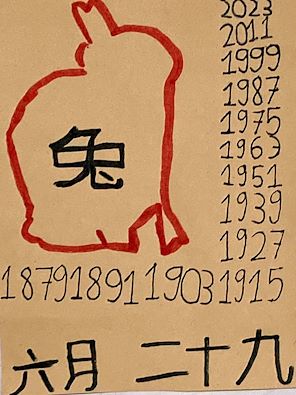 2023
2011
1999
1987
1975
1963
兔
1951
1939
1927
1879 1891 1903 1915
六月 二十九